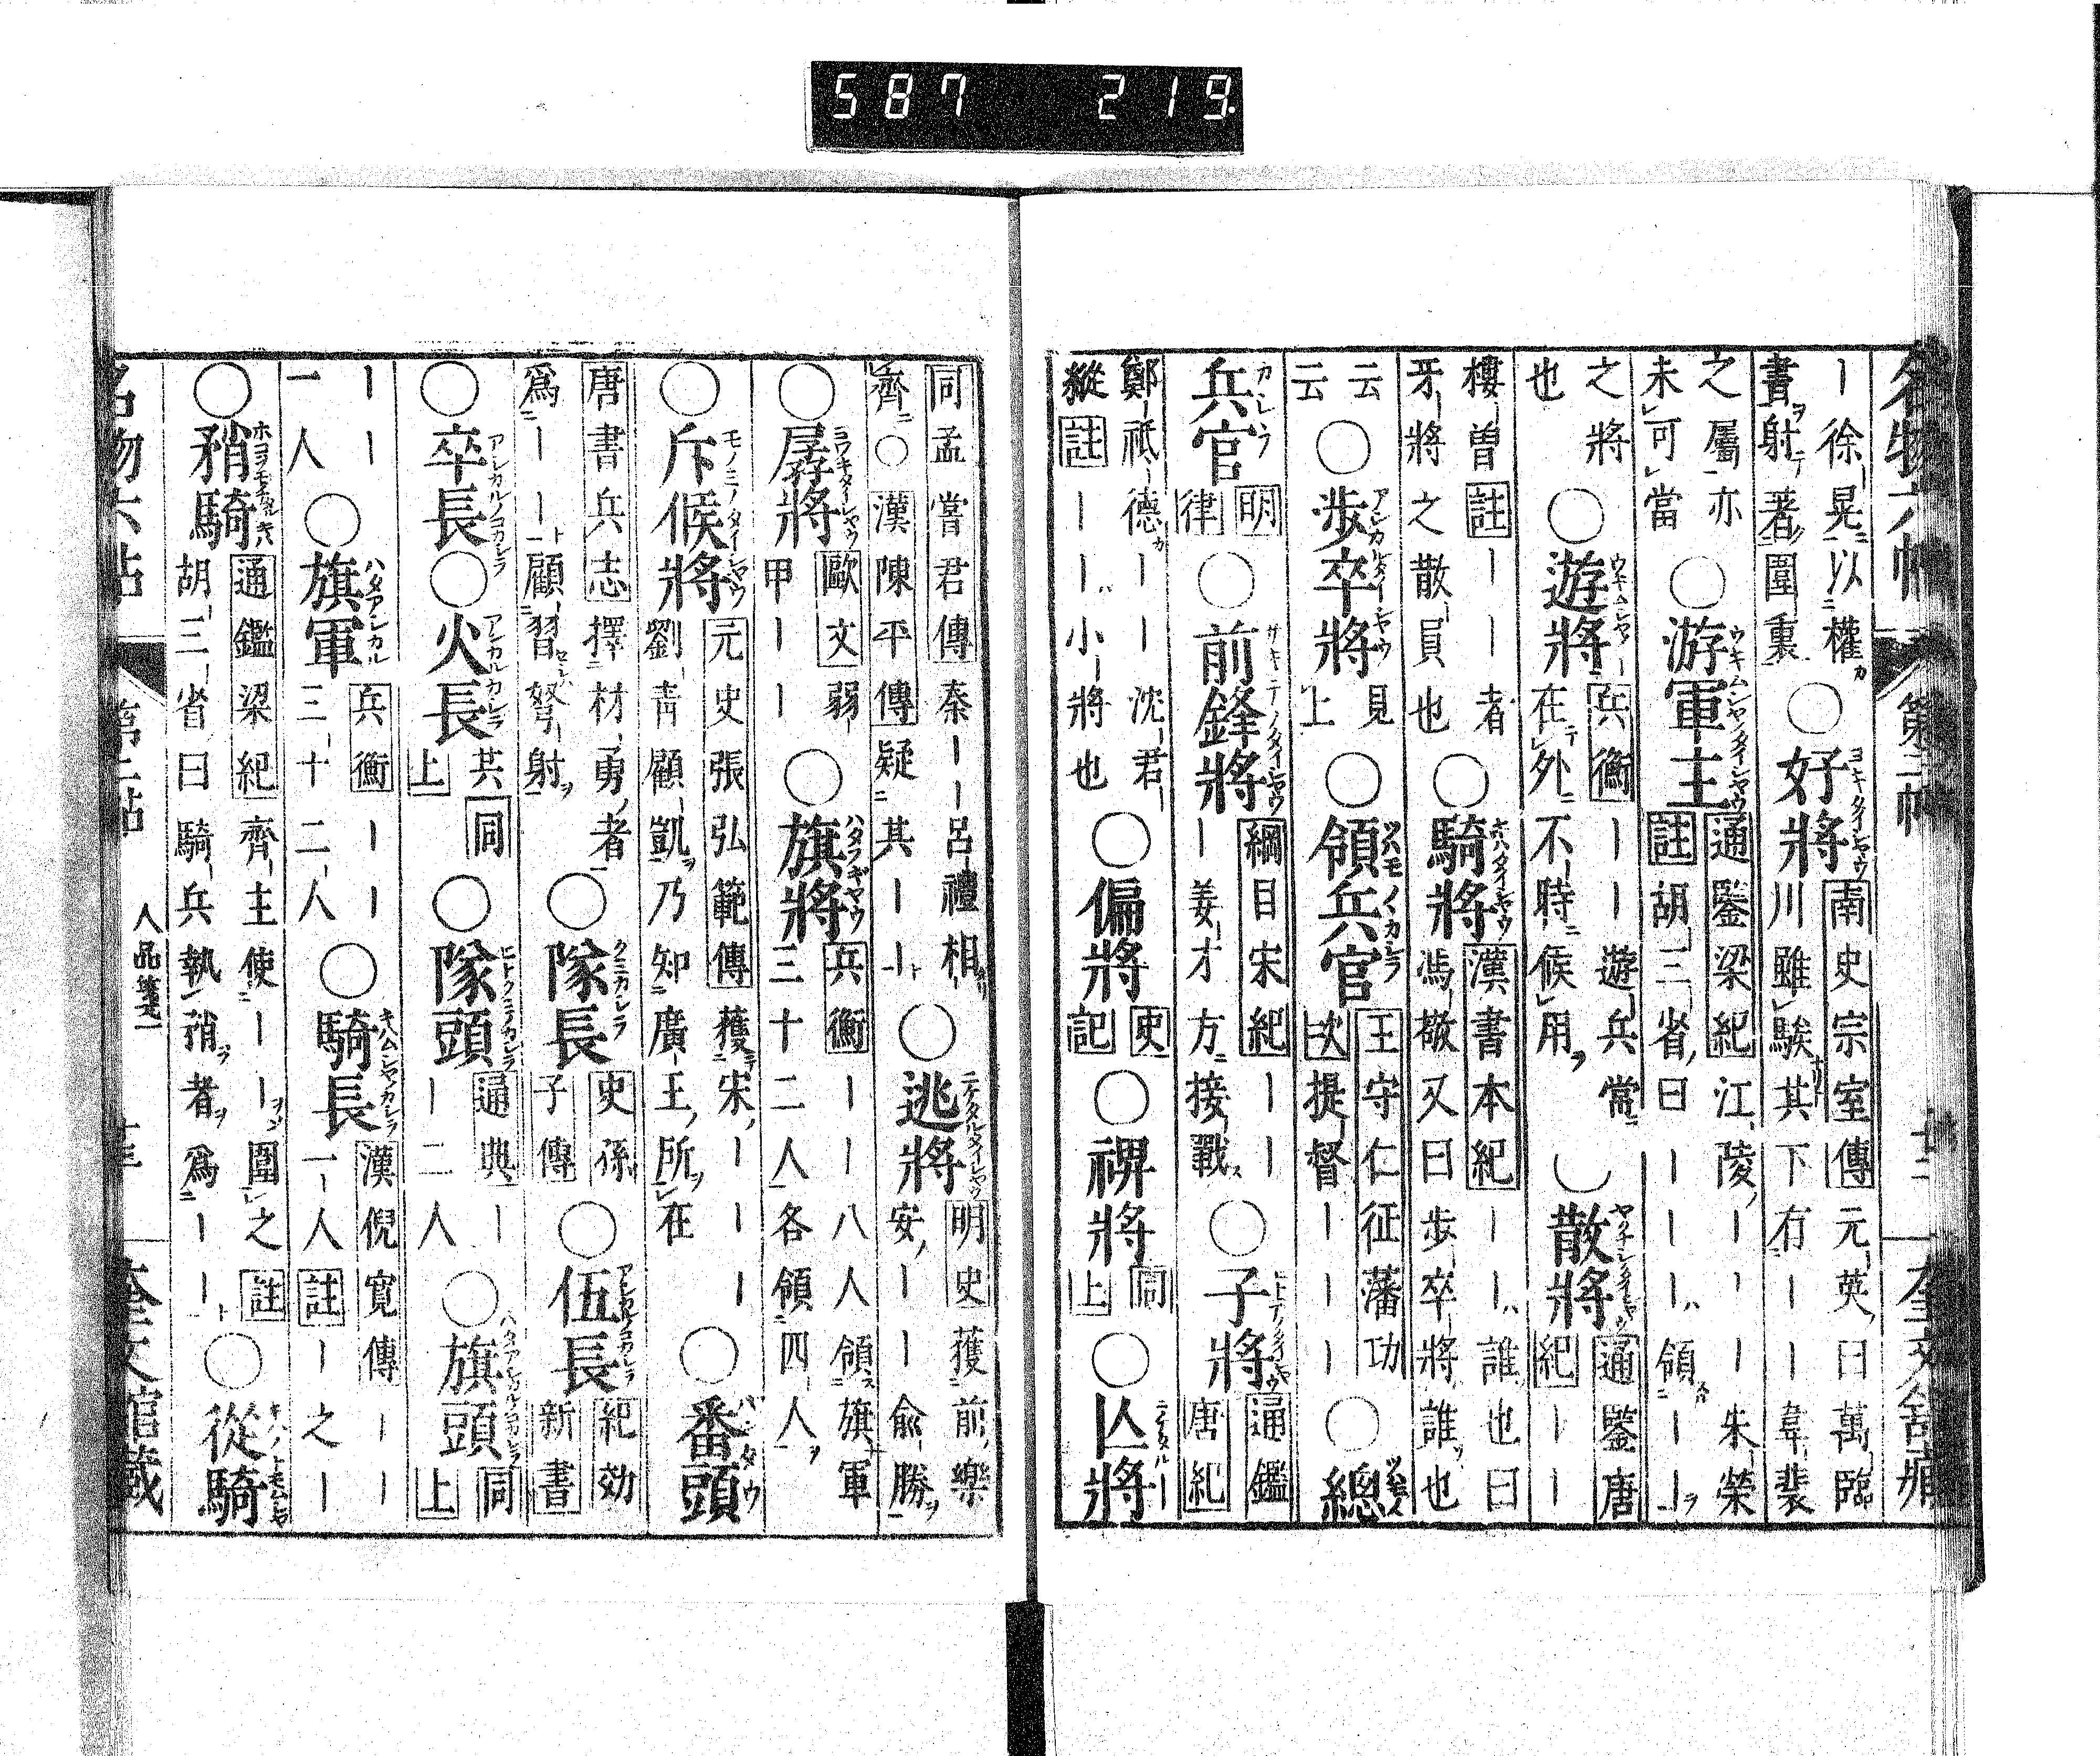 587 219.
名物六帖 第二帖
ー徐晃以權
書射著圍裏○好將 南史宗室傳 元英曰蕭臨
川雖駿其下有ーー韋裴
之屬亦
未可當○游軍主 通鑒梁紀 江陵ーーー朱榮
註 胡三省曰ーーー領ーー
之將
也○遊將 兵衡 ーー遊兵常
在外不時候用○散將 通鑒唐
紀 ーー
樓曽 註 ーーー者
牙將之散員也○騎將 漢書本紀 ーー誰也曰
馮敬又曰歩卒將誰也
云
云○歩卒將 見
上○領兵官 王守仁征藩功
次 提督ーーー○總
兵官 明
律○前鋒將 綱目宋紀 ーー
ー姜才方接戰○子將 通鑑
唐紀
鄭祇德ーー沈君
縱 註 ーー小將也○偏將 史
記○裨將 同
上○亾將
同孟嘗君傳 秦ーー呂禮相
齊○漢陳平傳 疑其ーー○逃將 明史 獲前樂
安ーー兪勝
○孱將 歐文 弱
甲ーー○旗將 兵衡 ーー八人領旗軍
三十二人各領四人
○斥候將 元史張弘範傳 獲宋ーーー
劉青顧凱乃知廣王所在○番頭
唐書兵志 擇材勇者
爲ーー顧習弩射○隊長 史孫
子傳○伍長 紀効
新書
○卒長○火長 共同
上○隊頭 通典 ー
ー二人○旗頭 同
上
ーー
一人○旗軍 兵衡 ーー
三十二人○騎長 漢倪寬傳 ーー
一人 註 ー之ー
○矟騎 通鑑梁紀 齊主使ーー圍之 註
胡三省曰騎兵執矟者爲ーー○從騎
名物六帖 第二帖 人品箋一 奎文館藏